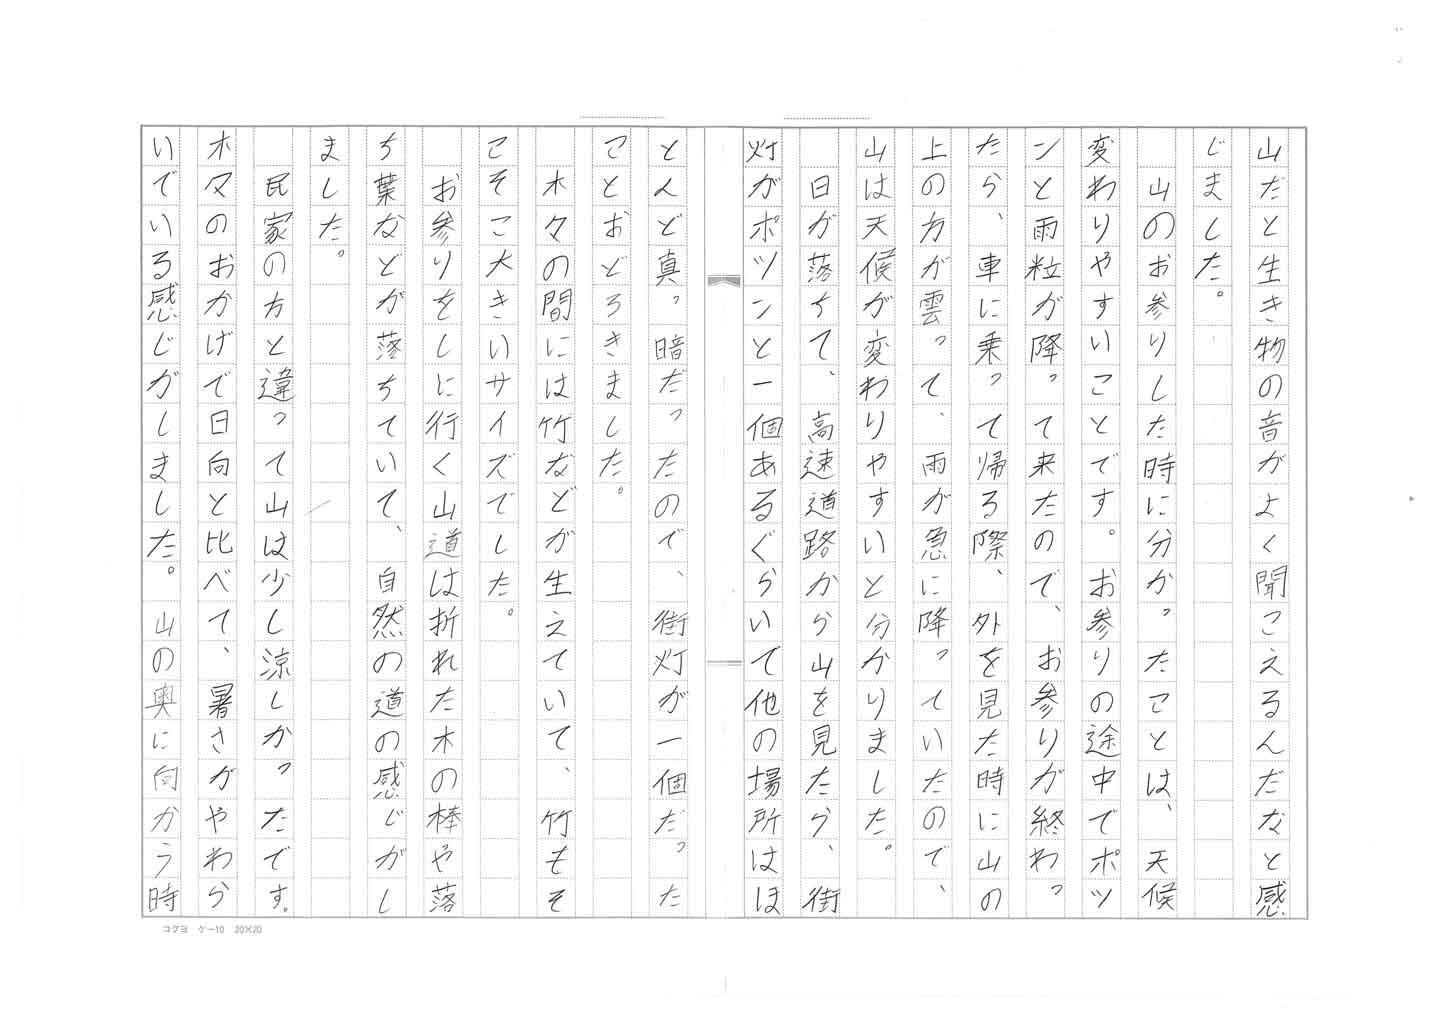 山だと生き物の音がよく聞こえるんだなと感
じました。
　山のお参りした時に分かったことは、天候
変わりやすいことです。お参りの途中でポツ
ンと雨粒が降って来たので、お参りが終わっ
たら、車に乗って帰る際、外を見た時に山の
上の方が雲って、雨が急に降っていたので、
山は天候が変わりやすいと分かりました。
　日が落ちて、高速道路から山を見たら、街
灯がポツンと一個あるぐらいで他の場所はほ
とんど真っ暗だったので、街灯が一個だった
ことおどろきました。
　木々の間には竹などが生えていて、竹もそ
こそこ大きいサイズでした。
　お参りをしに行く山道は折れた木の棒や落
ち葉などが落ちていて、自然の道の感じがし
ました。
　民家の方と違って山は少し涼しかったです。
木々のおかげで日向と比べて、暑さがやわら
いでいる感じがしました。山の奥に向かう時
コクヨ　ケー10　20×20